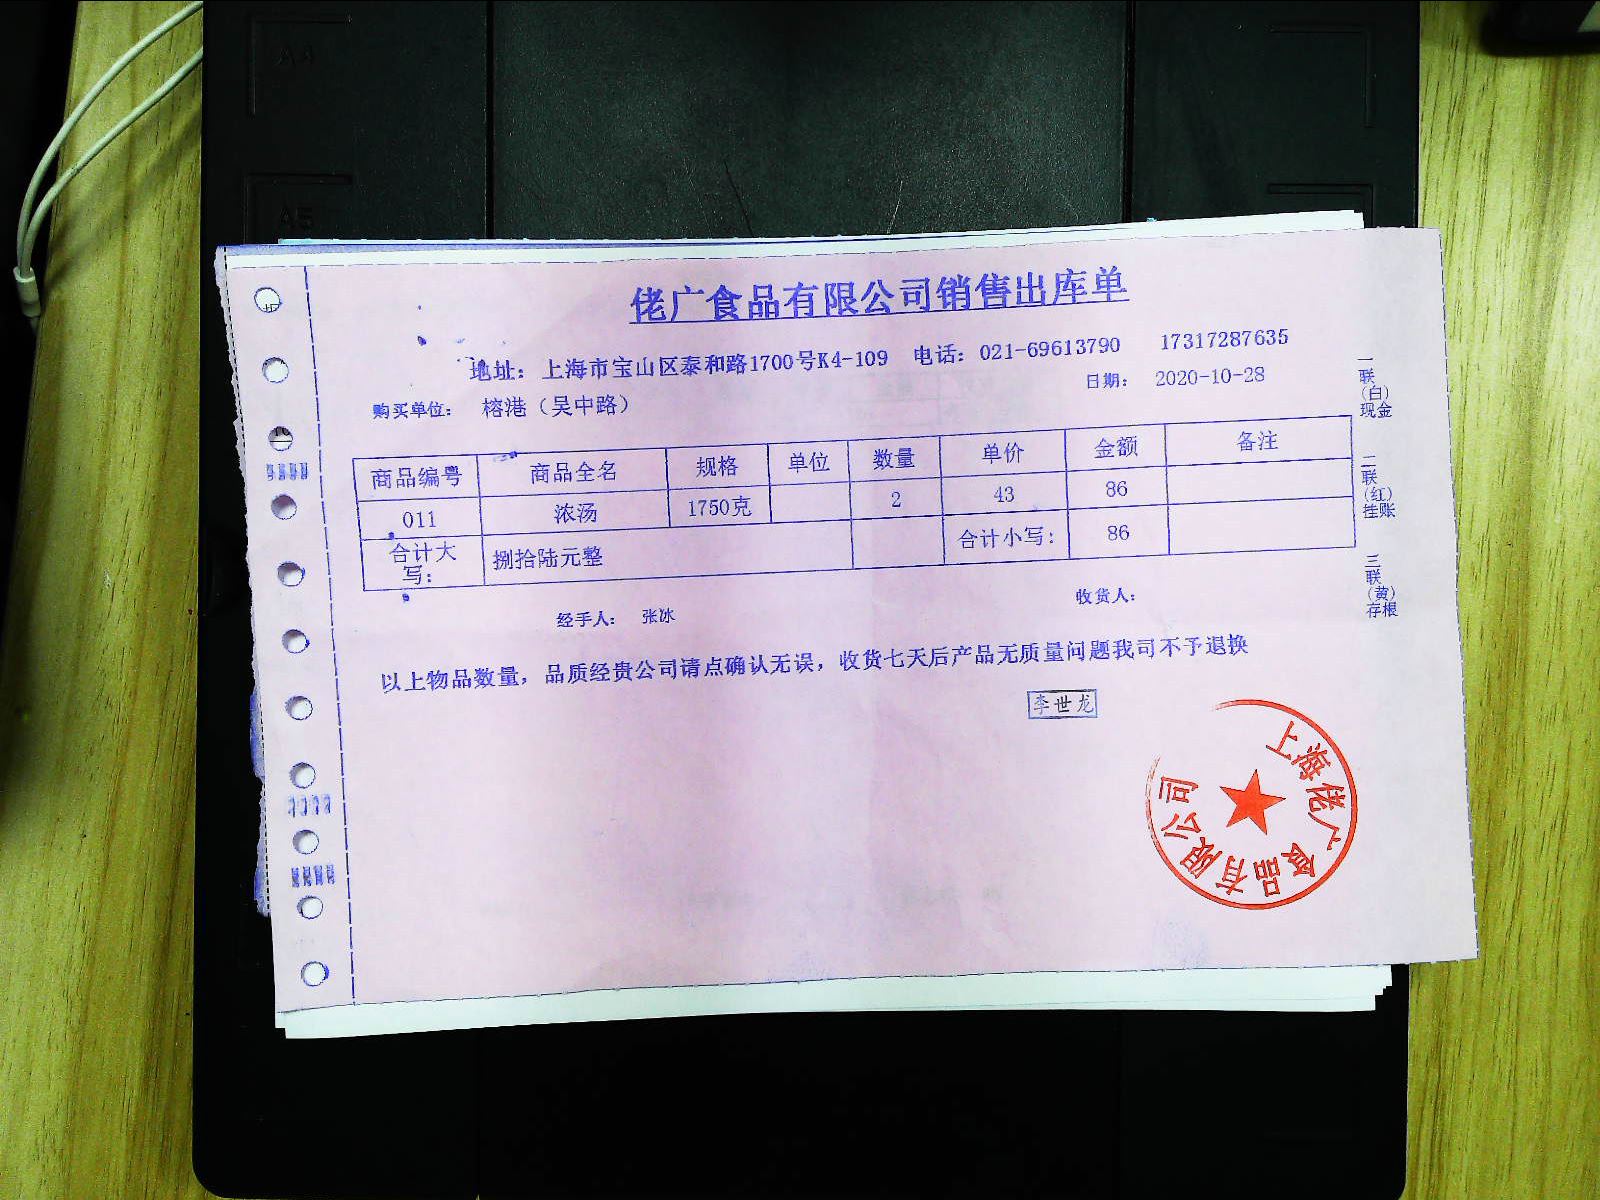 A4
A5
佬广食品有限公司销售出库单
地址：上海市宝山区泰和路1700号K4-109 电话：021-69613790 17317287635
购买单位： 榕港（吴中路） 日期： 2020-10-28
商品编号 商品全名 规格 单位 数量 单价 金额 备注
011 浓汤 1750克 2 43 86
合计大写： 捌拾陆元整 合计小写： 86
经手人： 张冰 收货人：
以上物品数量，品质经贵公司请点确认无误，收货七天后产品无质量问题我司不予退换
李世龙
上海佬广食品有限公司
一联（白）现金
二联（红）挂账
三联（黄）存根